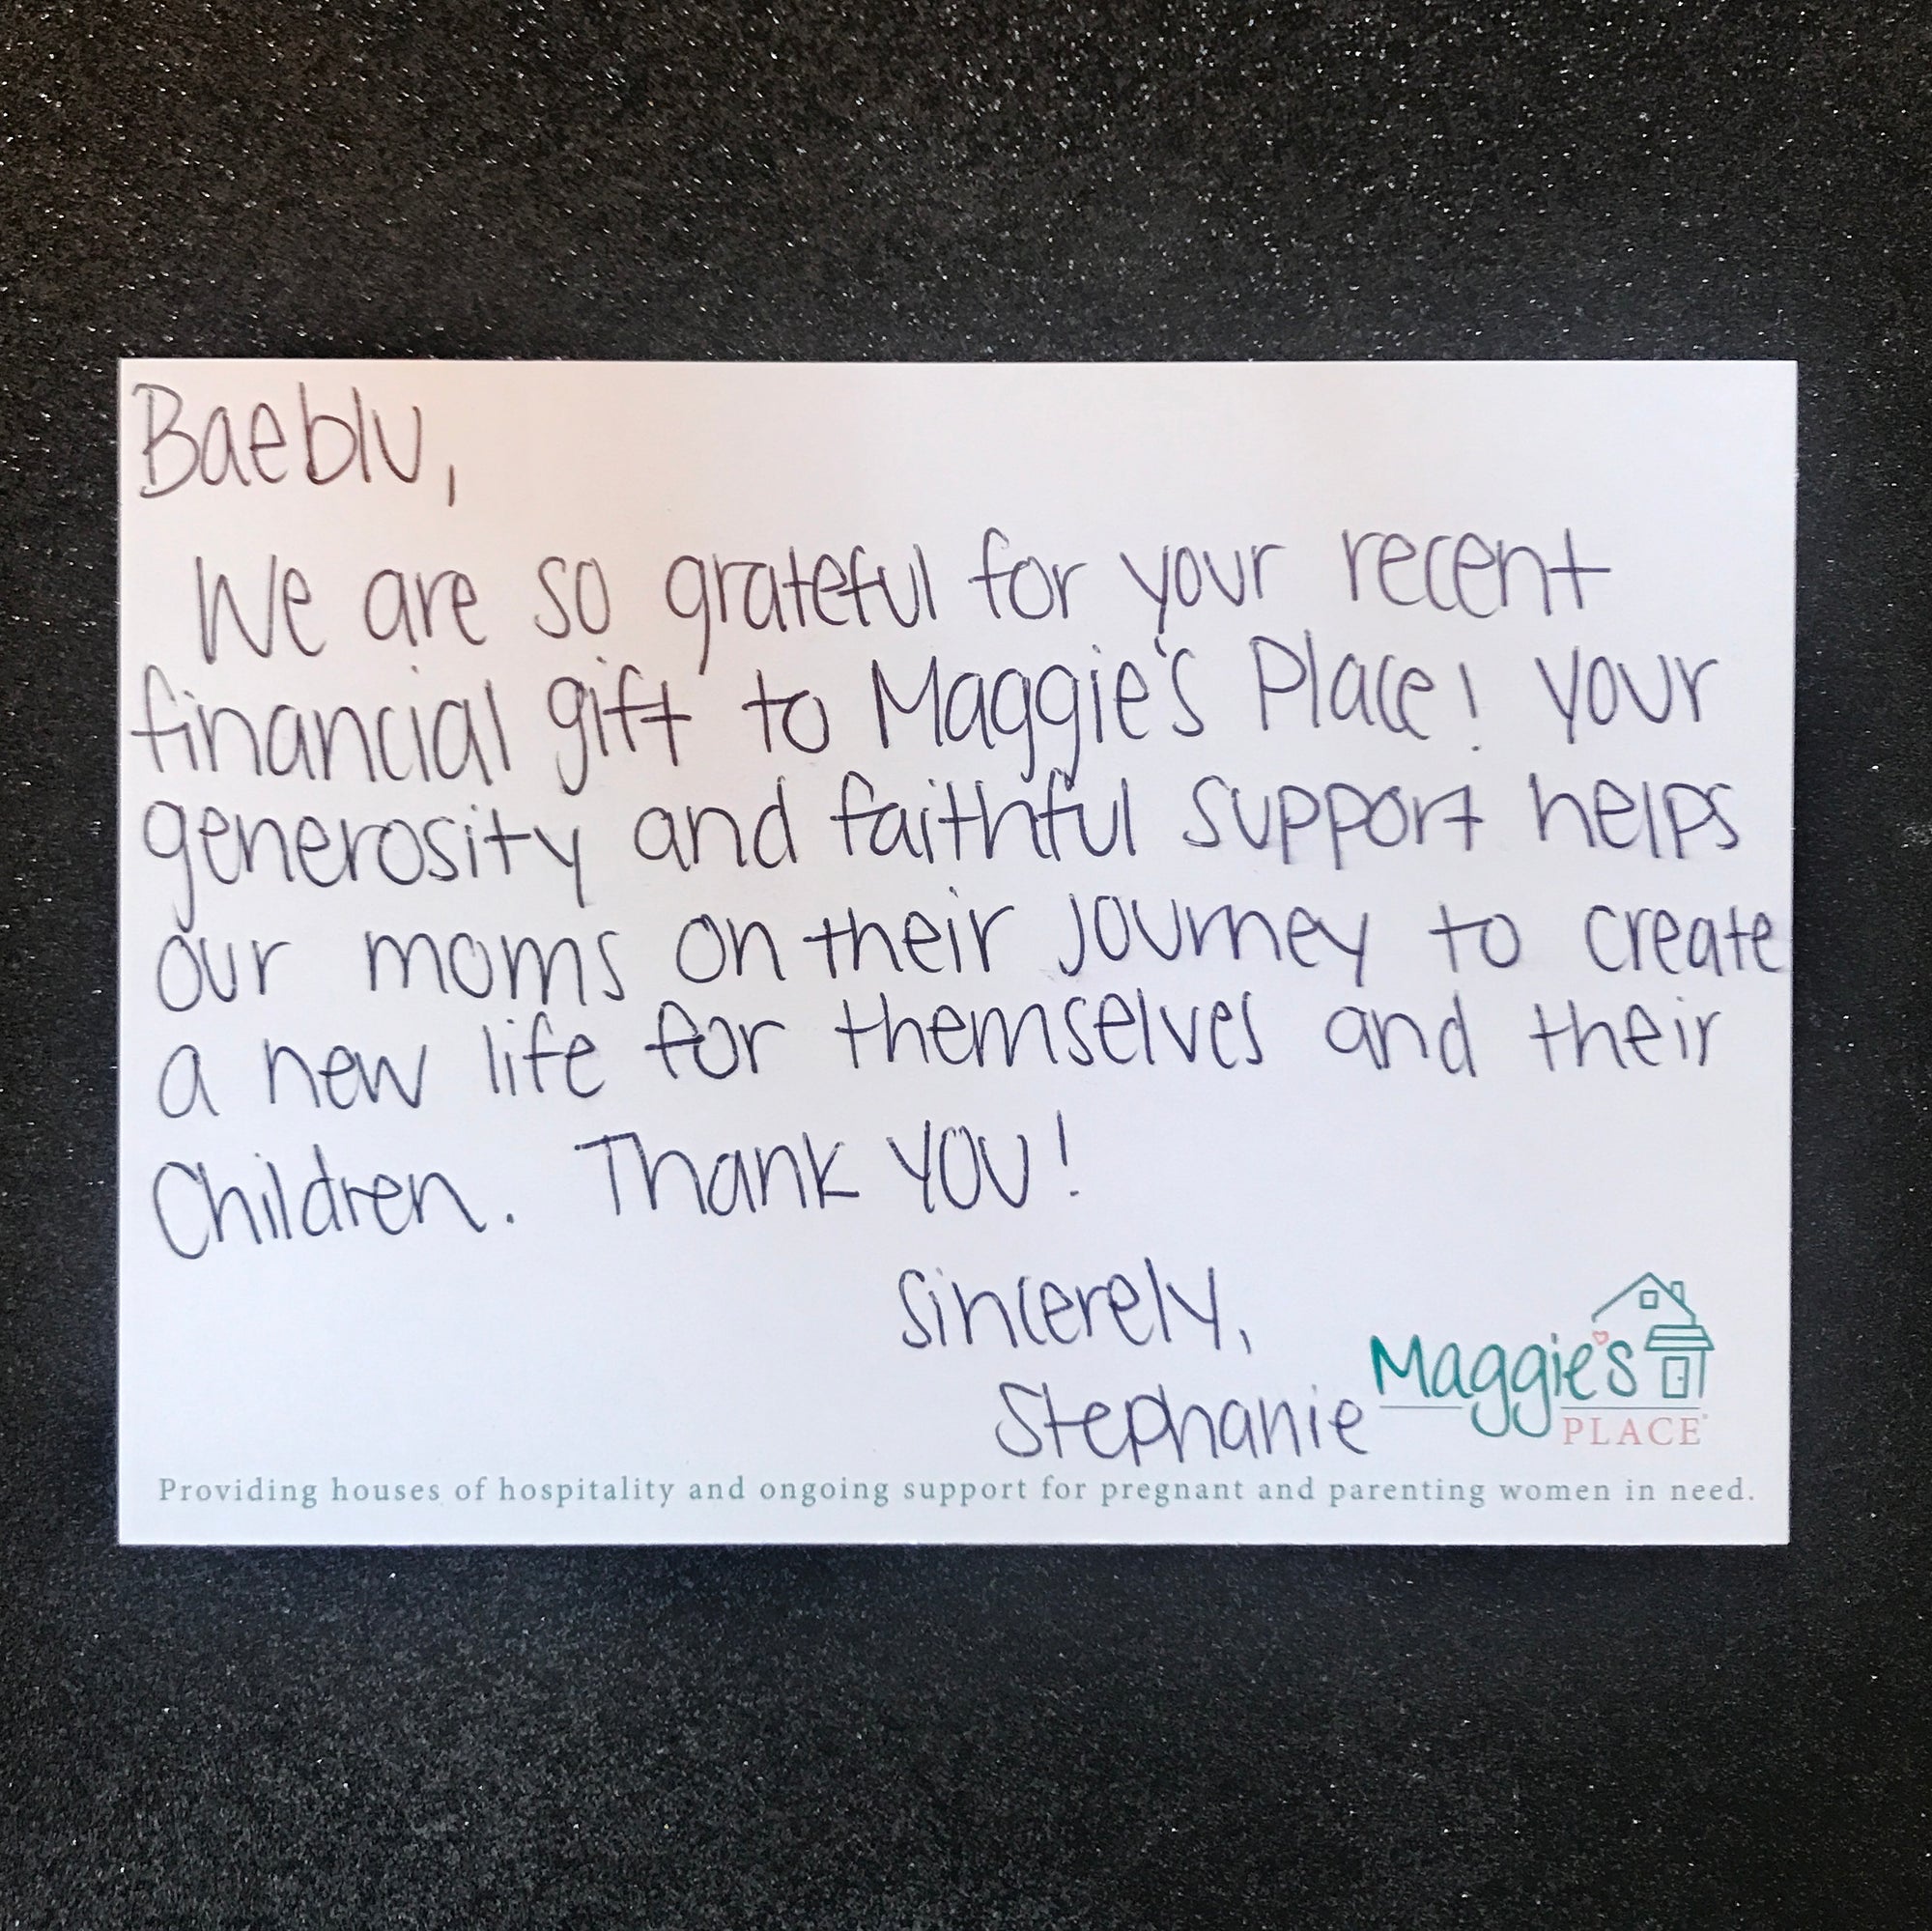 Baeblu,
We are so grateful for your recent
financial gift to Maggie's Place! Your
generosity and faithful support helps
our moms on their journey to create
a new life for themselves and their
Children. Thank you!
Sincerely,
Stephanie
Maggie's
PLACE®
Providing houses of hospitality and ongoing support for pregnant and parenting women in need.